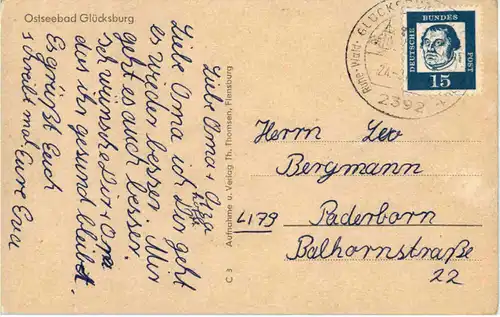 Ostseebad Glücksburg
Liebe Oma + Opa
Liebe Oma ich hoffe Dir geht
es wieder besser. Mir
geht es auch besser.
Ich wünsche Dir + Oma
das ihr gesund bleibt.
Es grüßt Euch
schreibt mal Eure Eva
C 3 Aufnahme u. Verlag Th. Thomsen, Flensburg
Ruhe-Wald- GLÜCKSBURG
24.
2392
DEUTSCHE BUNDES POST
15
Herrn Leo
Bergmann
4179 Paderborn
Balhornstraße
22